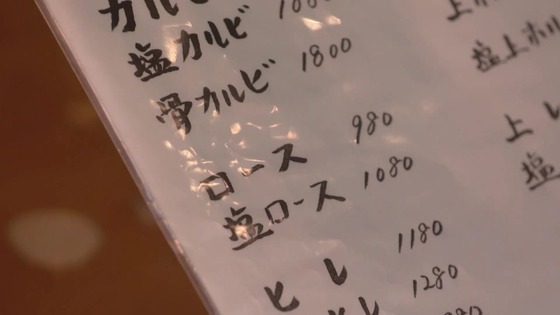 カルビ
塩カルビ
骨カルビ 1800
ロース 980
塩ロース 1080
ヒレ 1180
1280
塩上ホル
上レ
塩